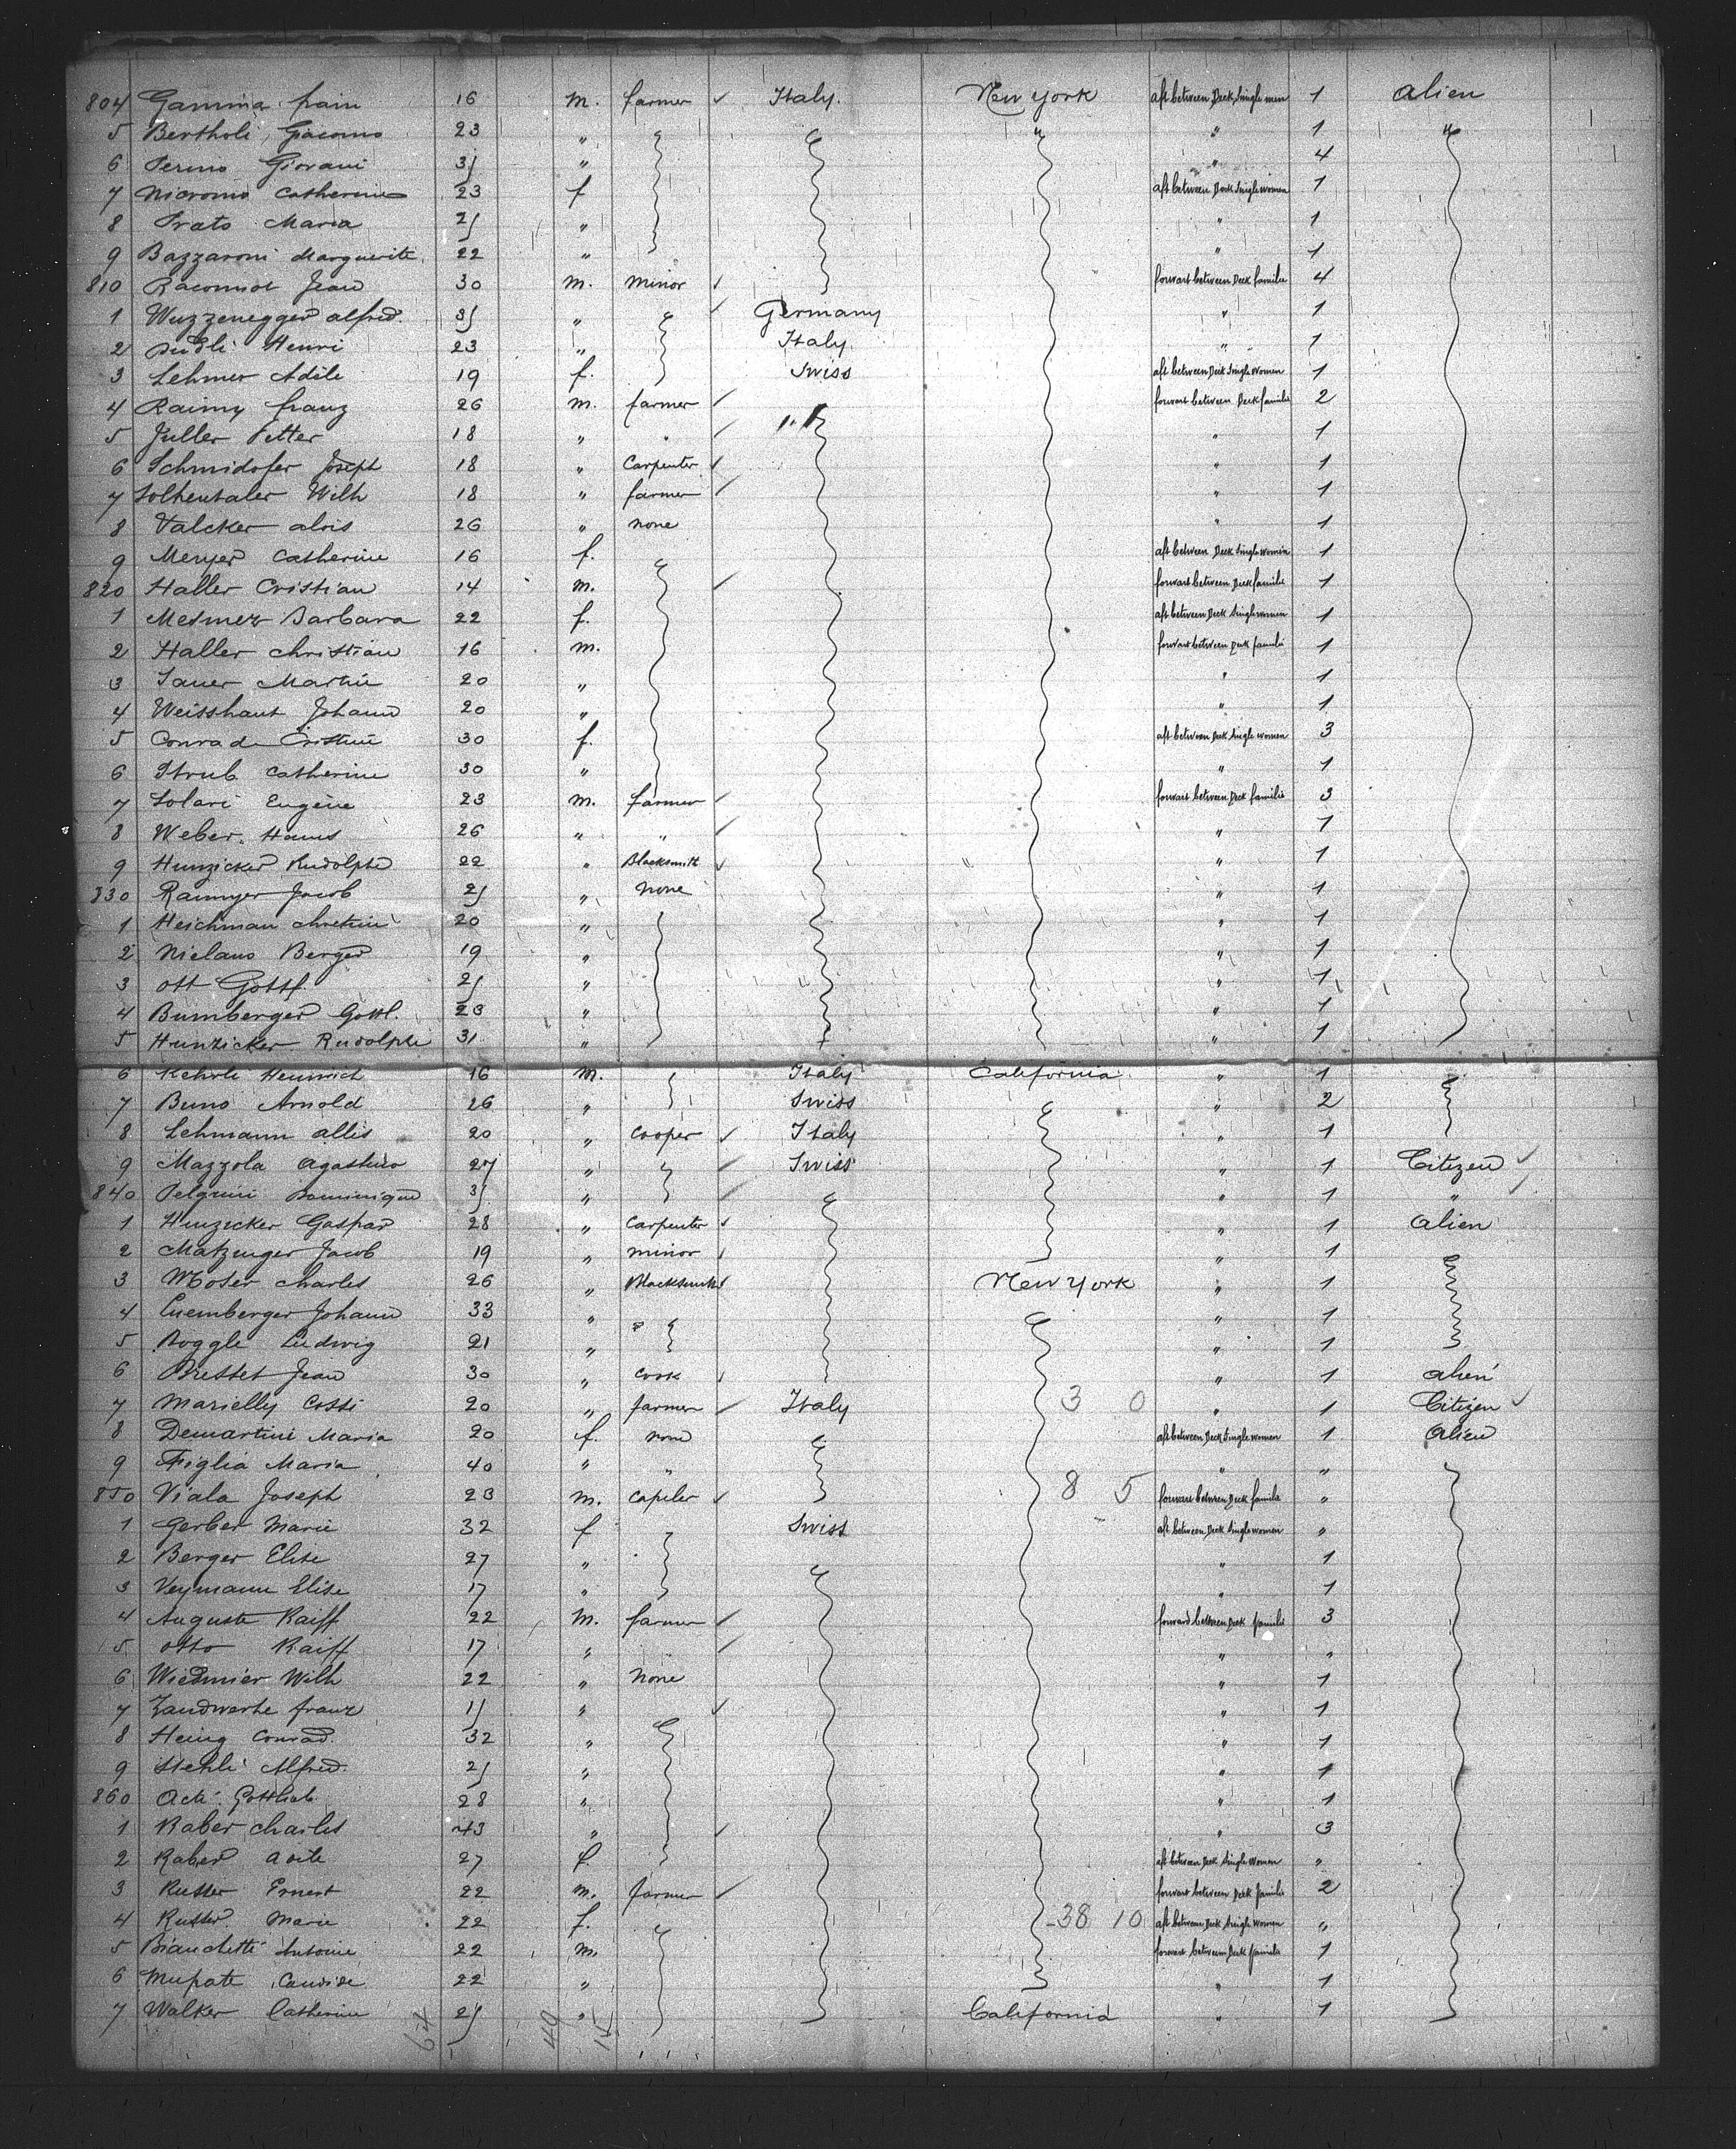 804 Gamma frain 16 M. farmer ✓ Italy. New York aft between Deck Single men 1 Alien
5 Bertholi, Giacomo 23 " " " 1 "
6 Perino Giovani 31 " " 4
7 Nicromo Catherine 23 f aft between Deck Single women 1
8 Prato Maria 21 " " 1
9 Bazzaroni Marguerite 22 " " 1
810 Raconnot Jean 30 M. Minor ✓ forwart between Deck familie 4
1 Wuzzenegger alfred. 31 " ✓ Germany " 1
2 Henri 23 " Italy. " 1
3 Lehmer Adèle 19 f. Swiss aft between Deck Single Women 1
4 Rainy franz 26 M. farmer ✓ forwart between Deck familie 2
5 Juller Petter 18 " " ✓ " 1
6 Schmidofer Joseph 18 " Carpenter ✓ " 1
7 Solhentaler Wilh 18 " farmer ✓ " 1
8 Valcker alois 26 " none " 1
9 Meryer Catherine 16 f. aft between Deck Single women 1
820 Haller Cristian 14 M. ✓ forwart between Deck familie 1
1 Mesmer Barbara 22 f. aft between Deck Single women 1
2 Haller christian 16 M. forwart between Deck familie 1
3 Sauer Martin 20 " " 1
4 Weisshaut Johann 20 " " 1
5 Conrade Cristine 30 f. aft between Deck Single women 3
6 Strub Catherine 30 " " 1
7 Solari Eugène 23 M. farmer ✓ forwart between Deck familie 3
8 Weber. Hans 26 " " ✓ " 1
9 Hunzicker Rudolphe 22 " Blacksmith ✓ " 1
830 Ramyer Jacob 21 " None " 1
1 Heichman chretien 20 " " 1
2 Niclaus Berger 19 " " 1
3 Ott Gottl. 21 " " 1
4 Bumberger Gottl. 23 " " 1
5 Hunzicker Rudolphe 31 " " 1
6 Kehrli Heinrich 16 M. Italy California " 1
7 Buno Arnold 26 " Swiss " 2
8 Lehmann allis 20 " Cooper ✓ Italy " 1
9 Mazzola Agostino 27 " ✓ Swiss " 1 Citizen ✓
840 Pelgrini Dominique 31 " ✓ " 1 " ✓
1 Hunzicker Gaspard 28 " Carpenter ✓ " 1 Alien
2 Matzinger Jacob 19 " Minor ✓ " 1
3 Moser charles 26 " Blacksmith ✓ New York " 1
4 Luemberger Johann 33 " " 1
5 Boggle Ludwig 21 " " 1
6 Jean 30 " Cook ✓ " 1 alien
7 Marielly Cossi 20 " farmer ✓ Italy 3 0 " 1 Citizen ✓
8 Demartini Maria 20 f. None aft between Deck Single women 1 Alien
9 Figlia Maria 40 " " " "
850 Viala Joseph 23 M. Capeler ✓ 8 5 forwart between Deck familie "
1 Gerber Marie 32 f Swiss aft between Deck Single women "
2 Berger Elise 27 " " 1
3 Veymann Elise 17 " " 1
4 Auguste Raiff 22 M. farmer ✓ forward between Deck familie 3
5 Otto Raiff 17 " ✓ " "
6 Wiedmier Wilh 22 " None " 1
7 Landwerhe franz 11 " ✓ " 1
8 Heinig Conrad. 32 " " 1
9 Stehli Alfred. 21 " " 1
860 Gottlieb 28 " " 1
1 Raber charles 43 " ✓ " 3
2 Raber 27 f. aft between Deck Single Women "
3 Russer Ernest 22 M. farmer ✓ forwart between Deck familie 2
4 Russer. Marie 22 f. 38 10 aft between Deck Single Women "
5 Bianchetti Antoine 22 M. forwart between Deck familie 1
6 Mupate Candide 22 " " 1
7 Walker Catherine 21 " California " 1
64 49 15